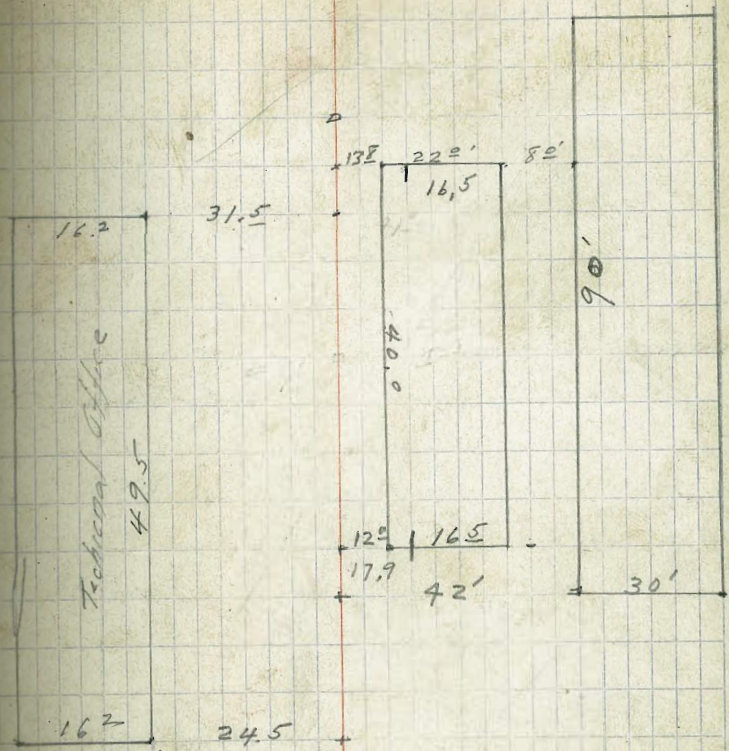 13⁸ 22⁰' 8⁰'
16,5
31.5
16.2
90'
40.0
Technical Office
49.5
12⁰ 16⁵
17,9
42' 30'
16² 24.5